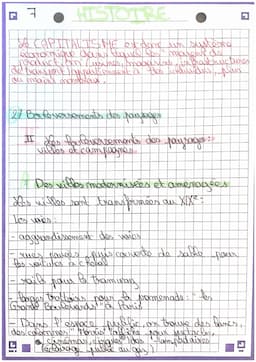 7
HISTOIRE
Le CAPITALISME est donc un système
économique dans lequel les moyens de
production (usines, magasins, infrastructures
de transport) appartiennent à des individus, plus
ou moins nombreux.
2/ Bouleversements des paysages
II Les bouleversements des paysages :
villes et campagnes.
1 Des villes modernisées et aménagées
Les villes sont transformées au XIXe :
Les voies :
- aggrandissement des voies
- rues pavées, puis couverte de sable pour
les voitures à cheval
- rails pour le tramway
- larges trottoirs pour la promenade : "les
Grands Boulevards" à Paris
- Dans l'espace public, on trouve des bancs,
des colonnes "Morris"
cinémas, cirques
lampadaires
(éclairage public au gaz)